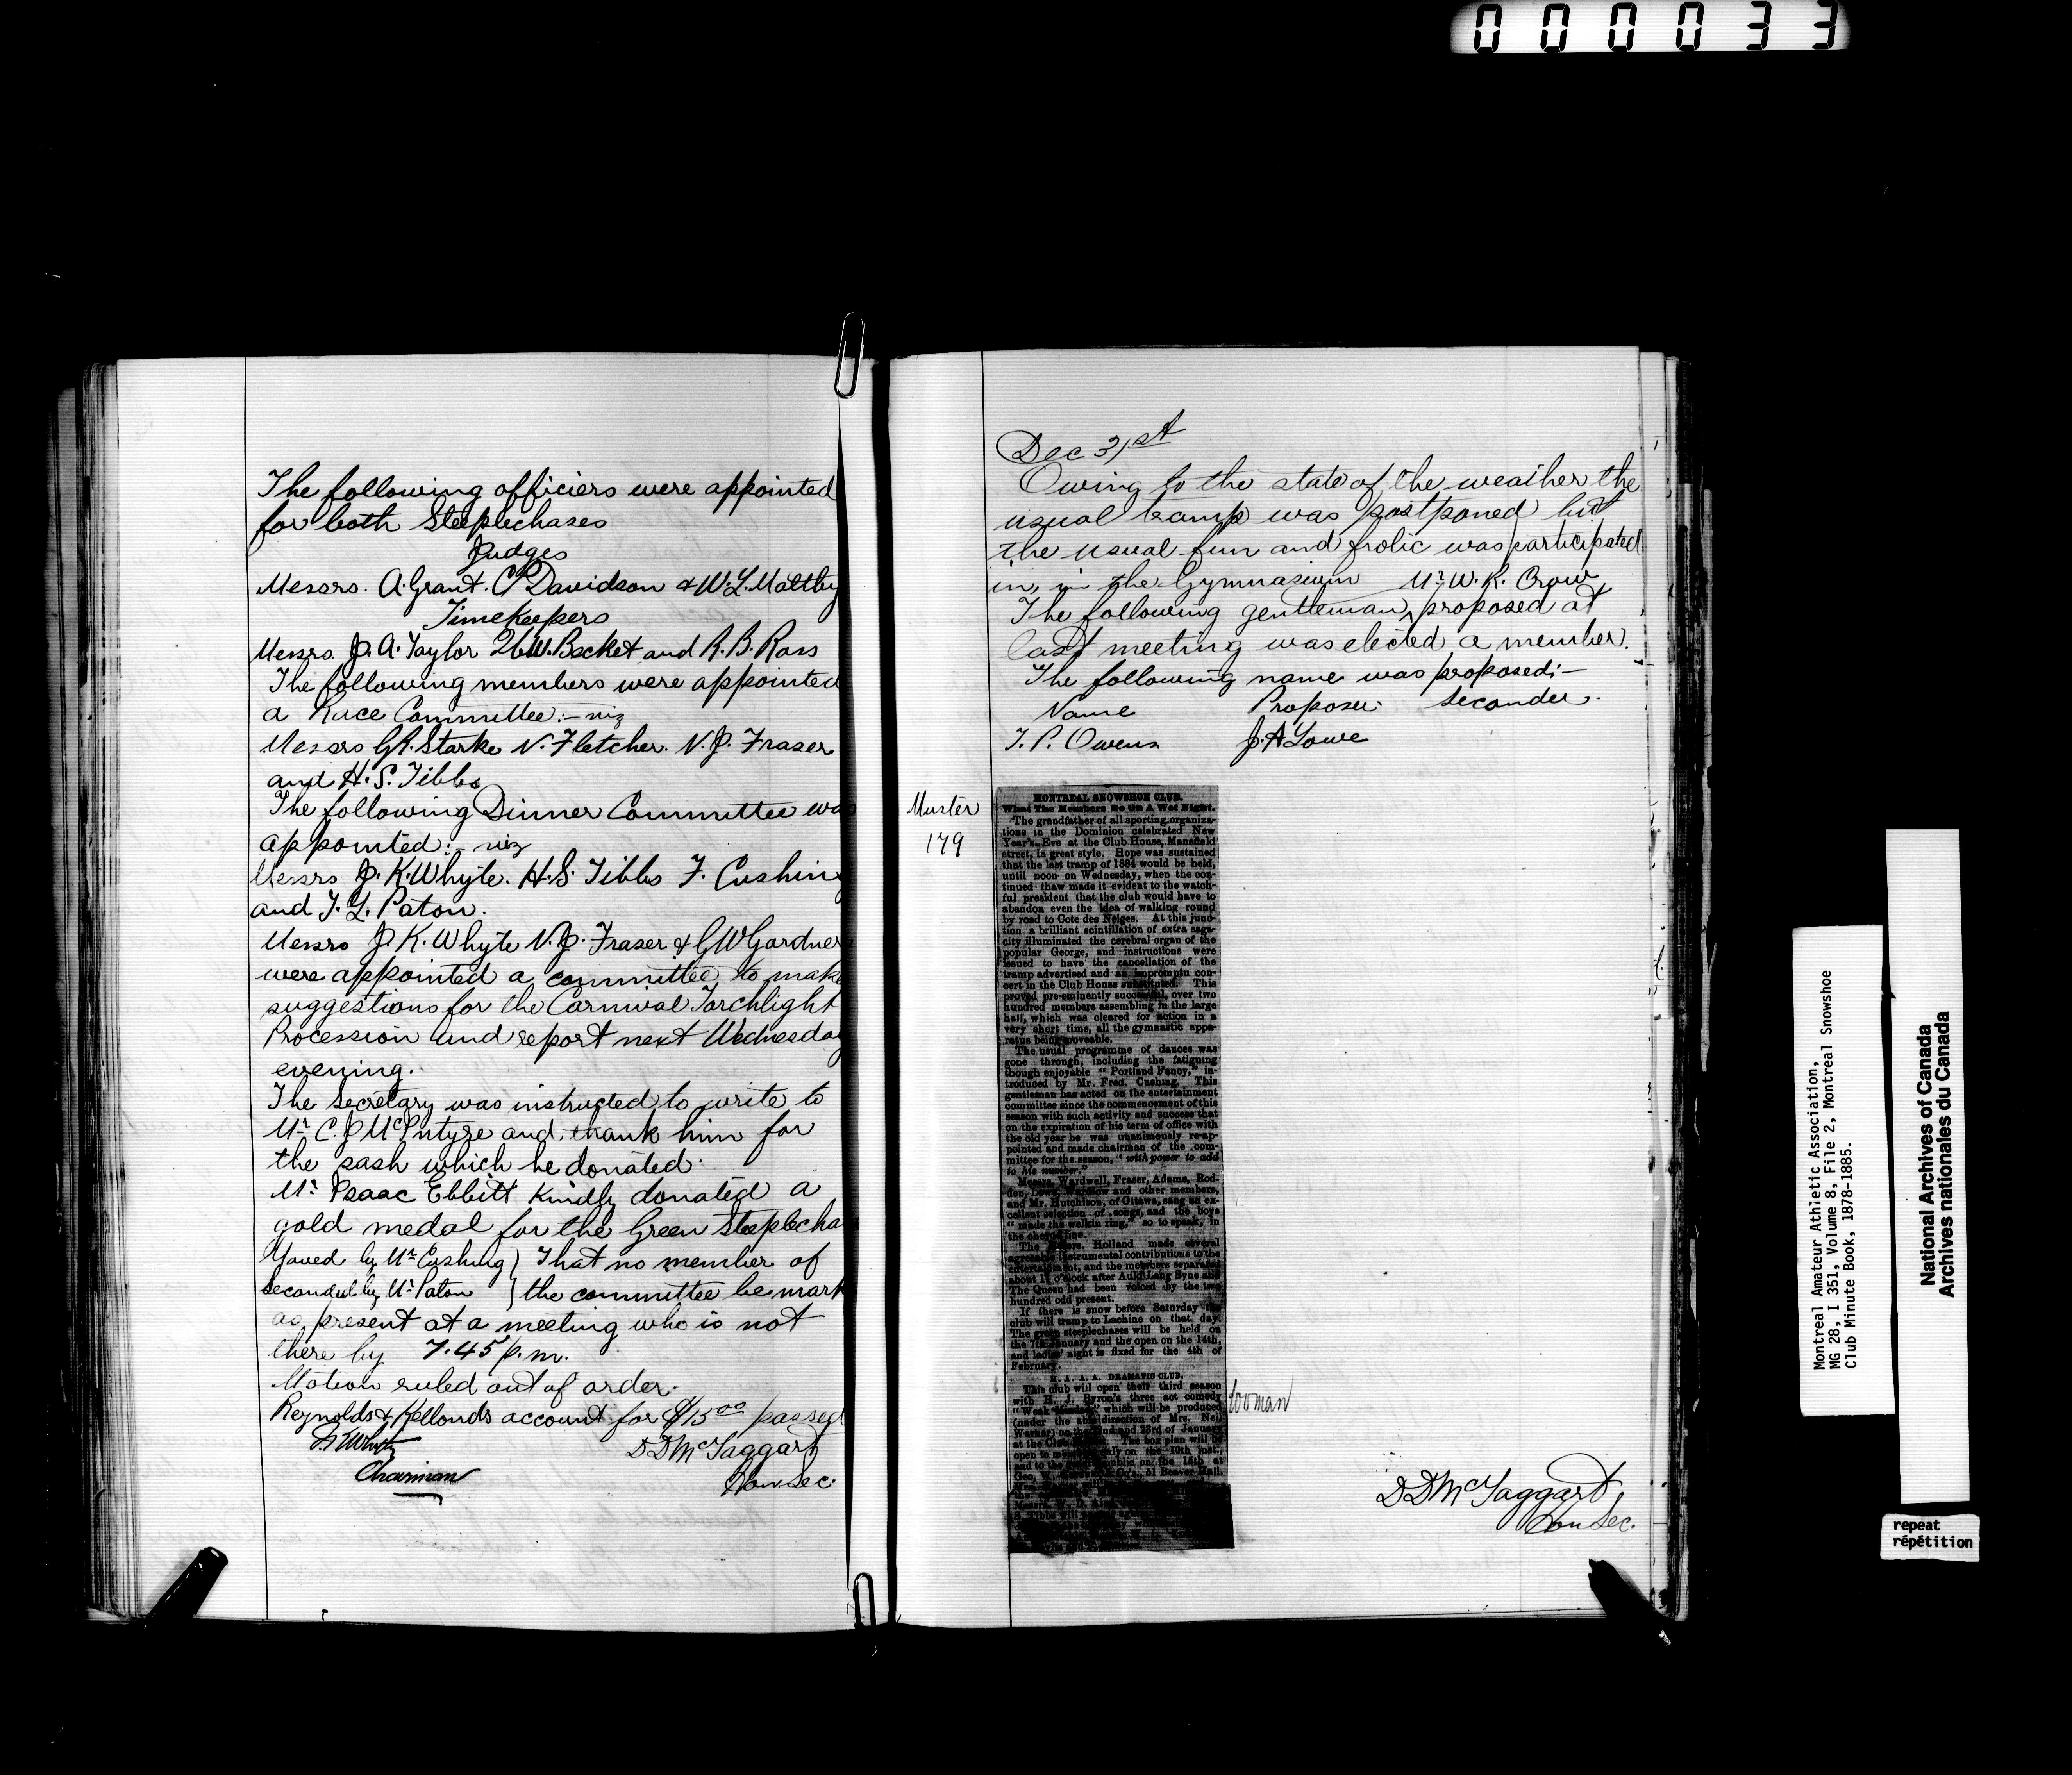 000033
The following officiers were appointed
for both Steeplechases
Judges
Messrs. A. Grant. C P Davidson & W. L. Maltby
Timekeepers
Messrs. J. A. Taylor W. Becket and R. B. Ross
The following members were appointed
a Race Committee:- viz
Messrs G R. Starke N. Fletcher. N. J. Fraser
and H. S. Tibbs
The following Dinner Committee was
appointed:- viz
Messrs J. K. Whyte. H. S. Tibbs F. Cushing
and T. L. Paton.
Messrs J K. Whyte N. J. Fraser & G W Gardner
were appointed a committee to make
suggestions for the Carnival Torchlight
Procession and report next Wednesday
evening.
The Secretary was instructed to write to
Mr. C. J McIntyre and thank him for
the sash which he donated.
Mr. Isaac Ebbitt kindly donated a
gold medal for the Green Steeplecha
Moved by Mr Cushing } That no member of
Seconded by Mr Paton } the committee be mark
as present at a meeting who is not
there by 7.45 p.m.
Motion ruled out of order.
Reynolds & Kellonds account for $15.00 passed
DDMcTaggart
Chairman
Hon Sec.
Dec 31st
Owing to the state of the weather the
usual tramp was postponed but
the usual fun and frolic was participated
in, in the Gymnasium Mr. W. K. Crow
The following gentleman, proposed at
last meeting was elected a member.
The following name was proposed:-
Name Proposer. Seconder.
T. P. Owens J. A Lowe
Muster
179
MONTREAL SNOWSHOE CLUB.
What The Members Do On A Wet Night.
The grandfather of all sporting organiza-
tions in the Dominion celebrated New
Year's Eve at the Club House, Mansfield
street, in great style. Hope was sustained
that the last tramp of 1884 would be held,
until noon on Wednesday, when the con-
tinued thaw made it evident to the watch-
ful president that the club would have to
abandon even the idea of walking round
by road to Cote des Neiges. At this junc-
tion a brilliant scintillation of extra saga-
city illuminated the cerebral organ of the
popular George, and instructions were
issued to have the cancellation of the
tramp advertised and an impromptu con-
cert in the Club House substituted. This
proved pre-eminently successful, over two
hundred members assembling in the large
hall, which was cleared for action in a
very short time, all the gymnastic appa-
ratus being moveable.
The usual programme of dances was
gone through, including the fatiguing
though enjoyable "Portland Fancy," in-
troduced by Mr. Fred. Cushing. This
gentleman has acted on the entertainment
committee since the commencement of this
season with such activity and success that
on the expiration of his term of office with
the old year he was unanimously re-ap-
pointed and made chairman of the com-
mittee for the season, "with power to add
to his number."
Messrs. Wardwell, Fraser, Adams, Rod-
den, Lowe, Wardlow and other members,
and Mr. Hutchison, of Ottawa, sang an ex-
cellent selection of songs, and the boys
"made the welkin ring," so to speak, in
the chorus line.
The Messrs. Holland made several
agreeable instrumental contributions to the
entertainment, and the members separated
about o'clock after Auld Lang Syne and
The Queen had been voiced by the two
hundred odd present.
If there is snow before Saturday the
club will tramp to Lachine on that day.
The green steeplechases will be held on
the 7th January and the open on the 14th,
and ladies' night is fixed for the 4th of
February.
M. A. A. A. DRAMATIC CLUB.
This club will open their third season
with H. J. Byron's three act comedy
"Weak which will be produced
Woman
(under the able direction of Mrs. Neil
Warner) on the 22nd and 23rd of January
at the Club The box plan will be
open to members only on the 10th inst.
and to the public on the 15th at
Geo. Co's, 51 Beaver Hall.
DDMcTaggart
Hon Sec.
Montreal Amateur Athletic Association,
MG 28, I 351, Volume 8, File 2, Montreal Snowshoe
Club Minute Book, 1878-1885.
National Archives of Canada
Archives nationales du Canada
repeat
répétition